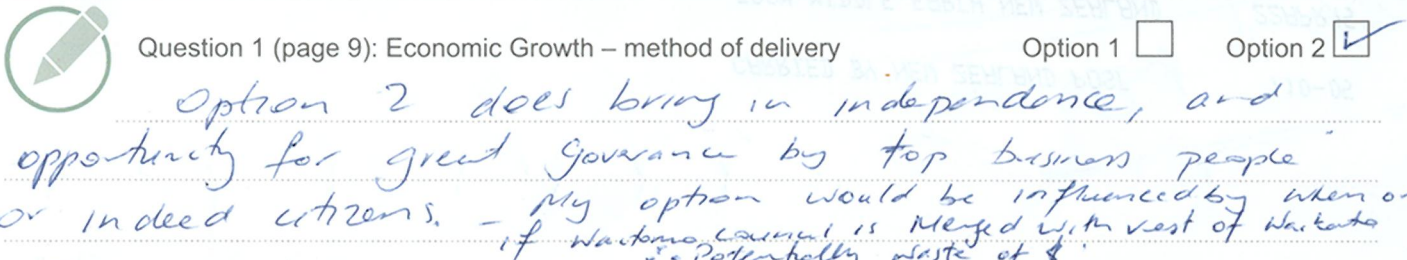 Question 1 (page 9): Economic Growth – method of delivery Option 1 Option 2
Option 2 does bring in independence, and
opportunity for great Goverance by top business people
or indeed citizens. - My option would be influenced by when or
if Waitomo Council is Merged with rest of Waikato
Potentially waste of $